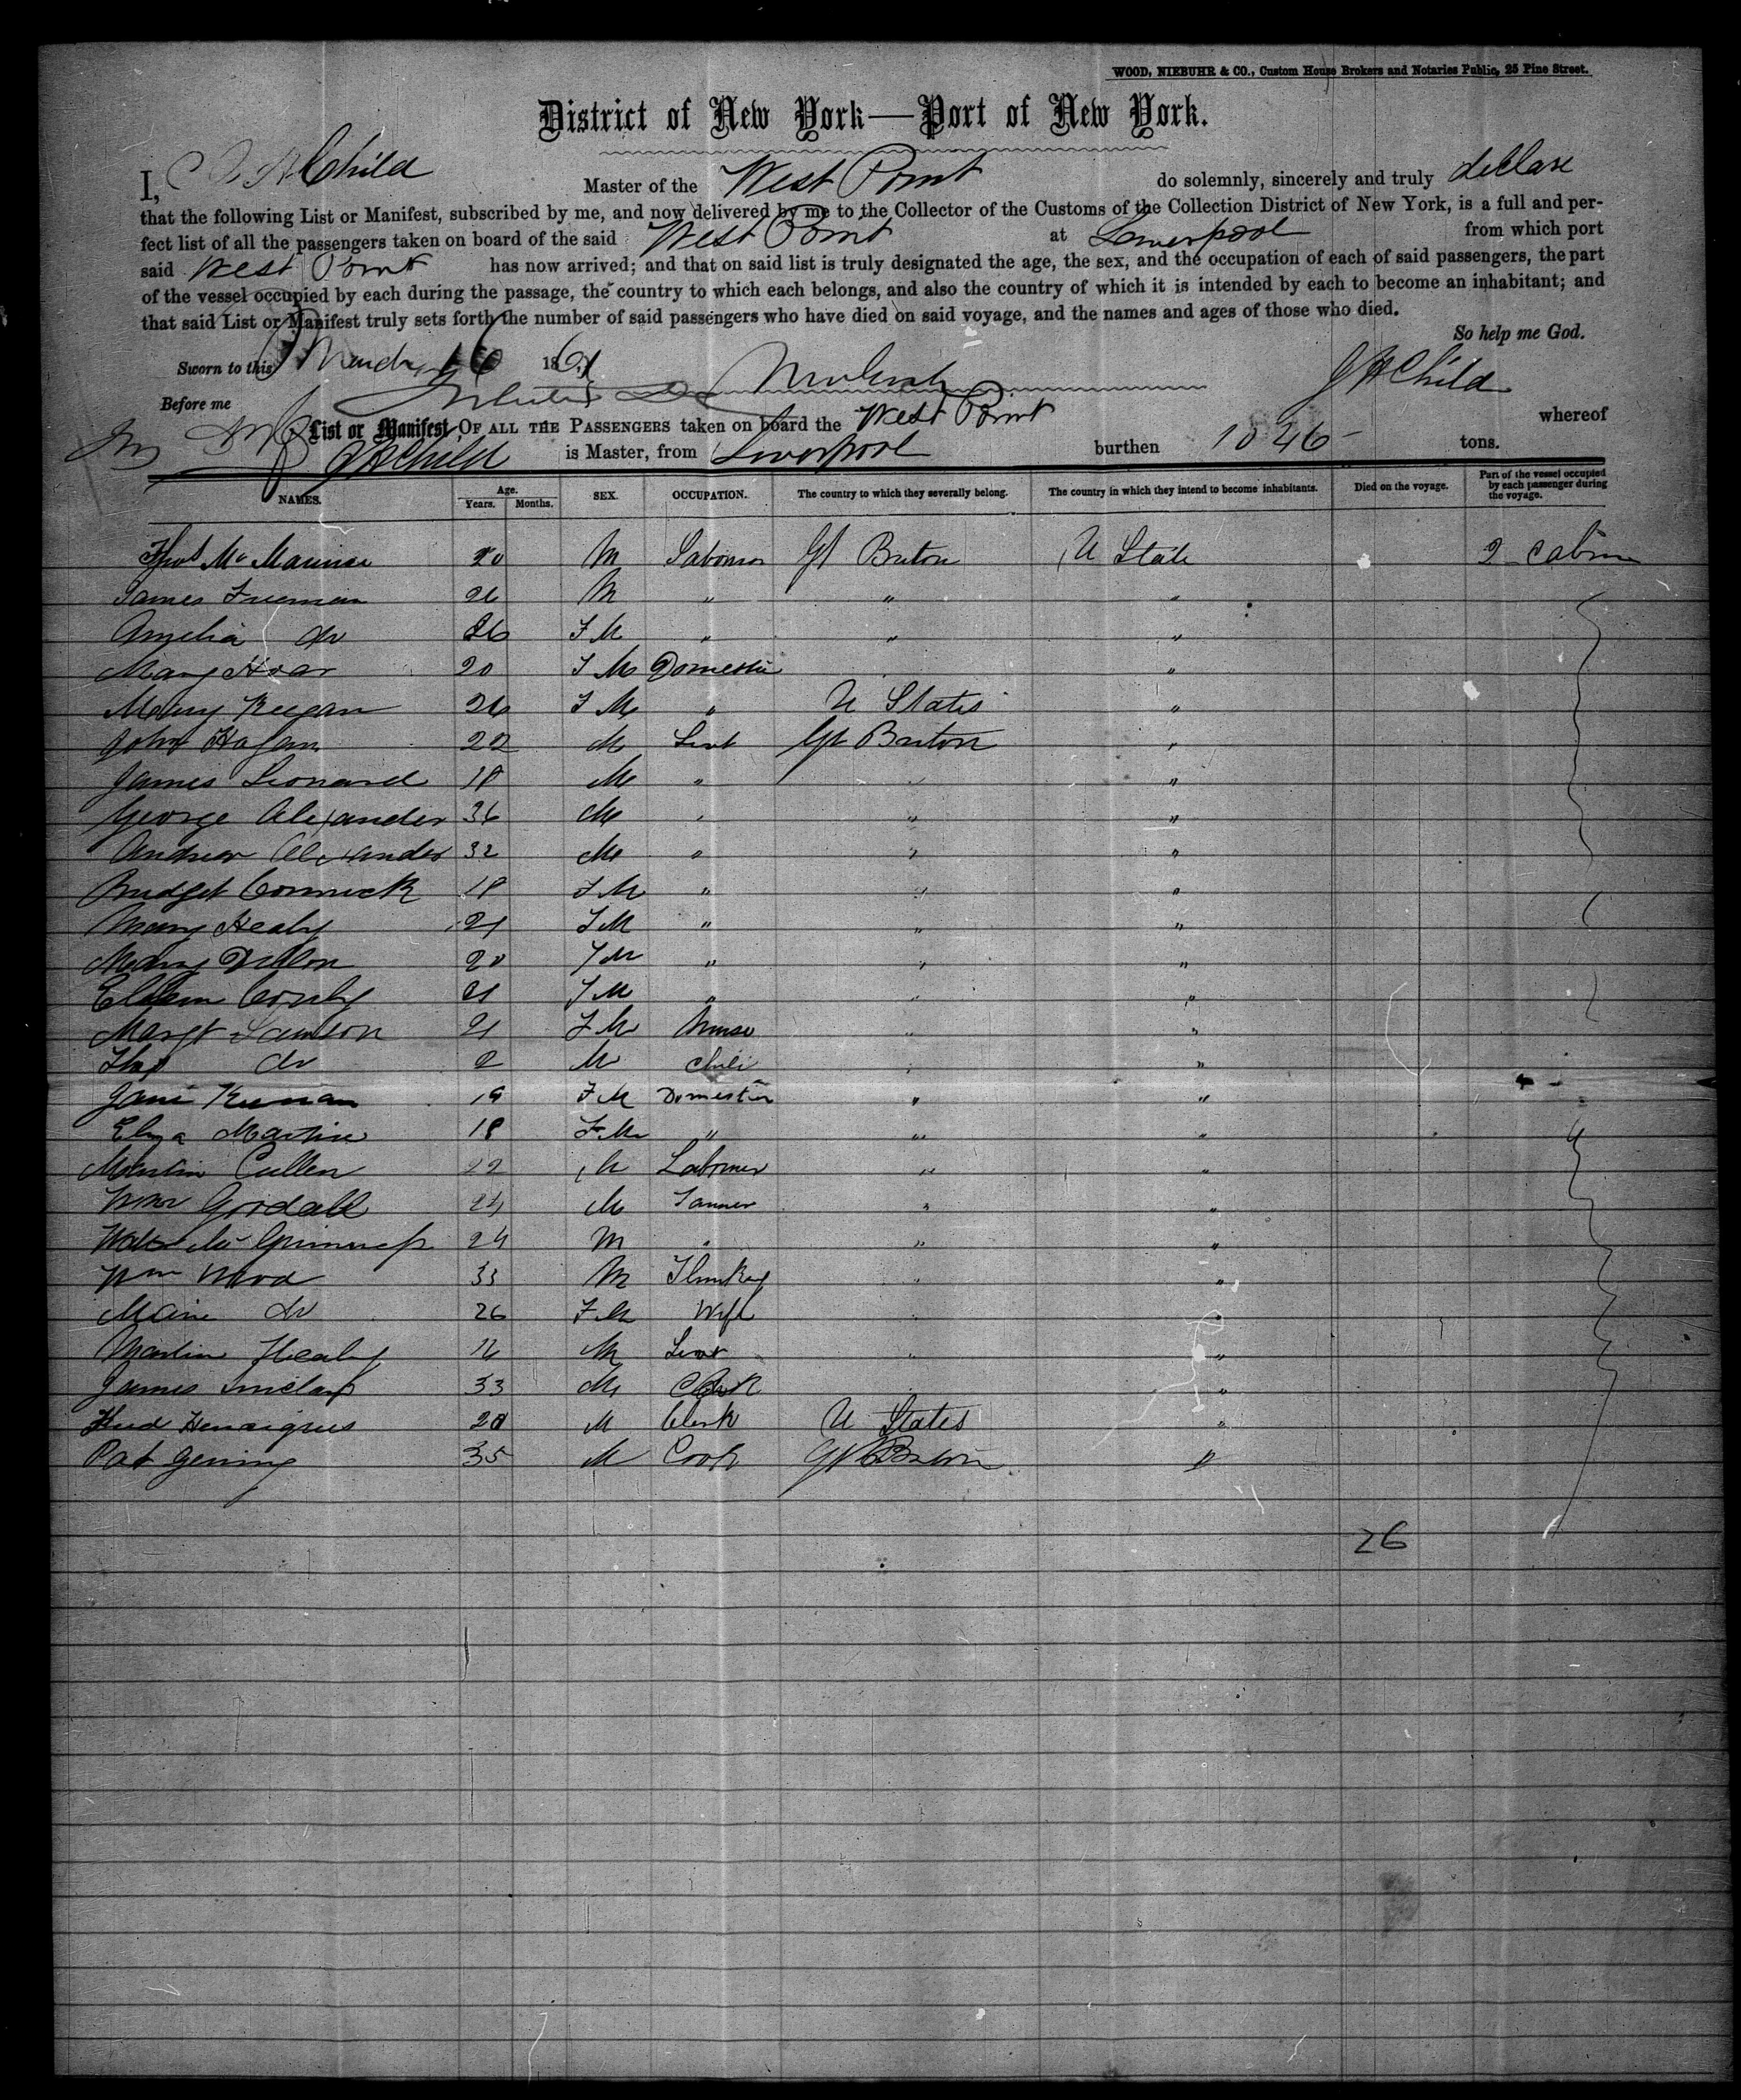 WOOD, NIEBUHR & CO., Custom House Brokers and Notaries Public, 25 Pine Street.
District of New York—Port of New York.
I, J H Child Master of the West Point do solemnly, sincerely and truly declare
that the following List or Manifest, subscribed by me, and now delivered by me to the Collector of the Customs of the Collection District of New York, is a full and per-
fect list of all the passengers taken on board of the said West Point at Liverpool from which port
said West Point has now arrived; and that on said list is truly designated the age, the sex, and the occupation of each of said passengers, the part
of the vessel occupied by each during the passage, the country to which each belongs, and also the country of which it is intended by each to become an inhabitant; and
that said List or Manifest truly sets forth the number of said passengers who have died on said voyage, and the names and ages of those who died.
So help me God.
Sworn to this March 16 1861
J H Child
Before me
List or Manifest OF ALL THE PASSENGERS taken on board the West Point whereof
J H Child is Master, from Liverpool burthen 1046 tons.
NAMES. Age. Years. Months. SEX. OCCUPATION. The country to which they severally belong. The country in which they intend to become inhabitants. Died on the voyage. Part of the vessel occupied by each passenger during the voyage.
Thos Mc 20 M Labourer Gt Briton U State 2 Cabin
James Freeman 26 M " " "
Amelia do 26 F M " " "
Mary Hoar 20 F M Domestic "
Mary Keegan 26 F M " U States "
John Hagan 22 M Servt Gt Briton "
James Leonard 18 M " "
George Alexander 36 M " " "
Andrew Alexander 32 M " " "
Bridget Cormick 18 F M " " "
Mary Healy 21 F M " " "
Mary Dillon 20 F M " " "
Ellen 21 F M " " "
Margt 21 F M Nurse " "
Thos do 2 M Child " "
Jane Keenan 19 F M Domestic " "
Eliza Martin 18 F M " " "
Martin Cullen 22 M Labourer " "
Wm Goodall 24 M Tanner " "
24 M " " "
Wm Wood 33 M " "
Marie do 26 F M Wife " "
Martin Healy 16 M Servt " "
James Sinclair 33 M "
Henriques 28 M Clerk U States "
Pat 35 M Cook Gt Briton "
26